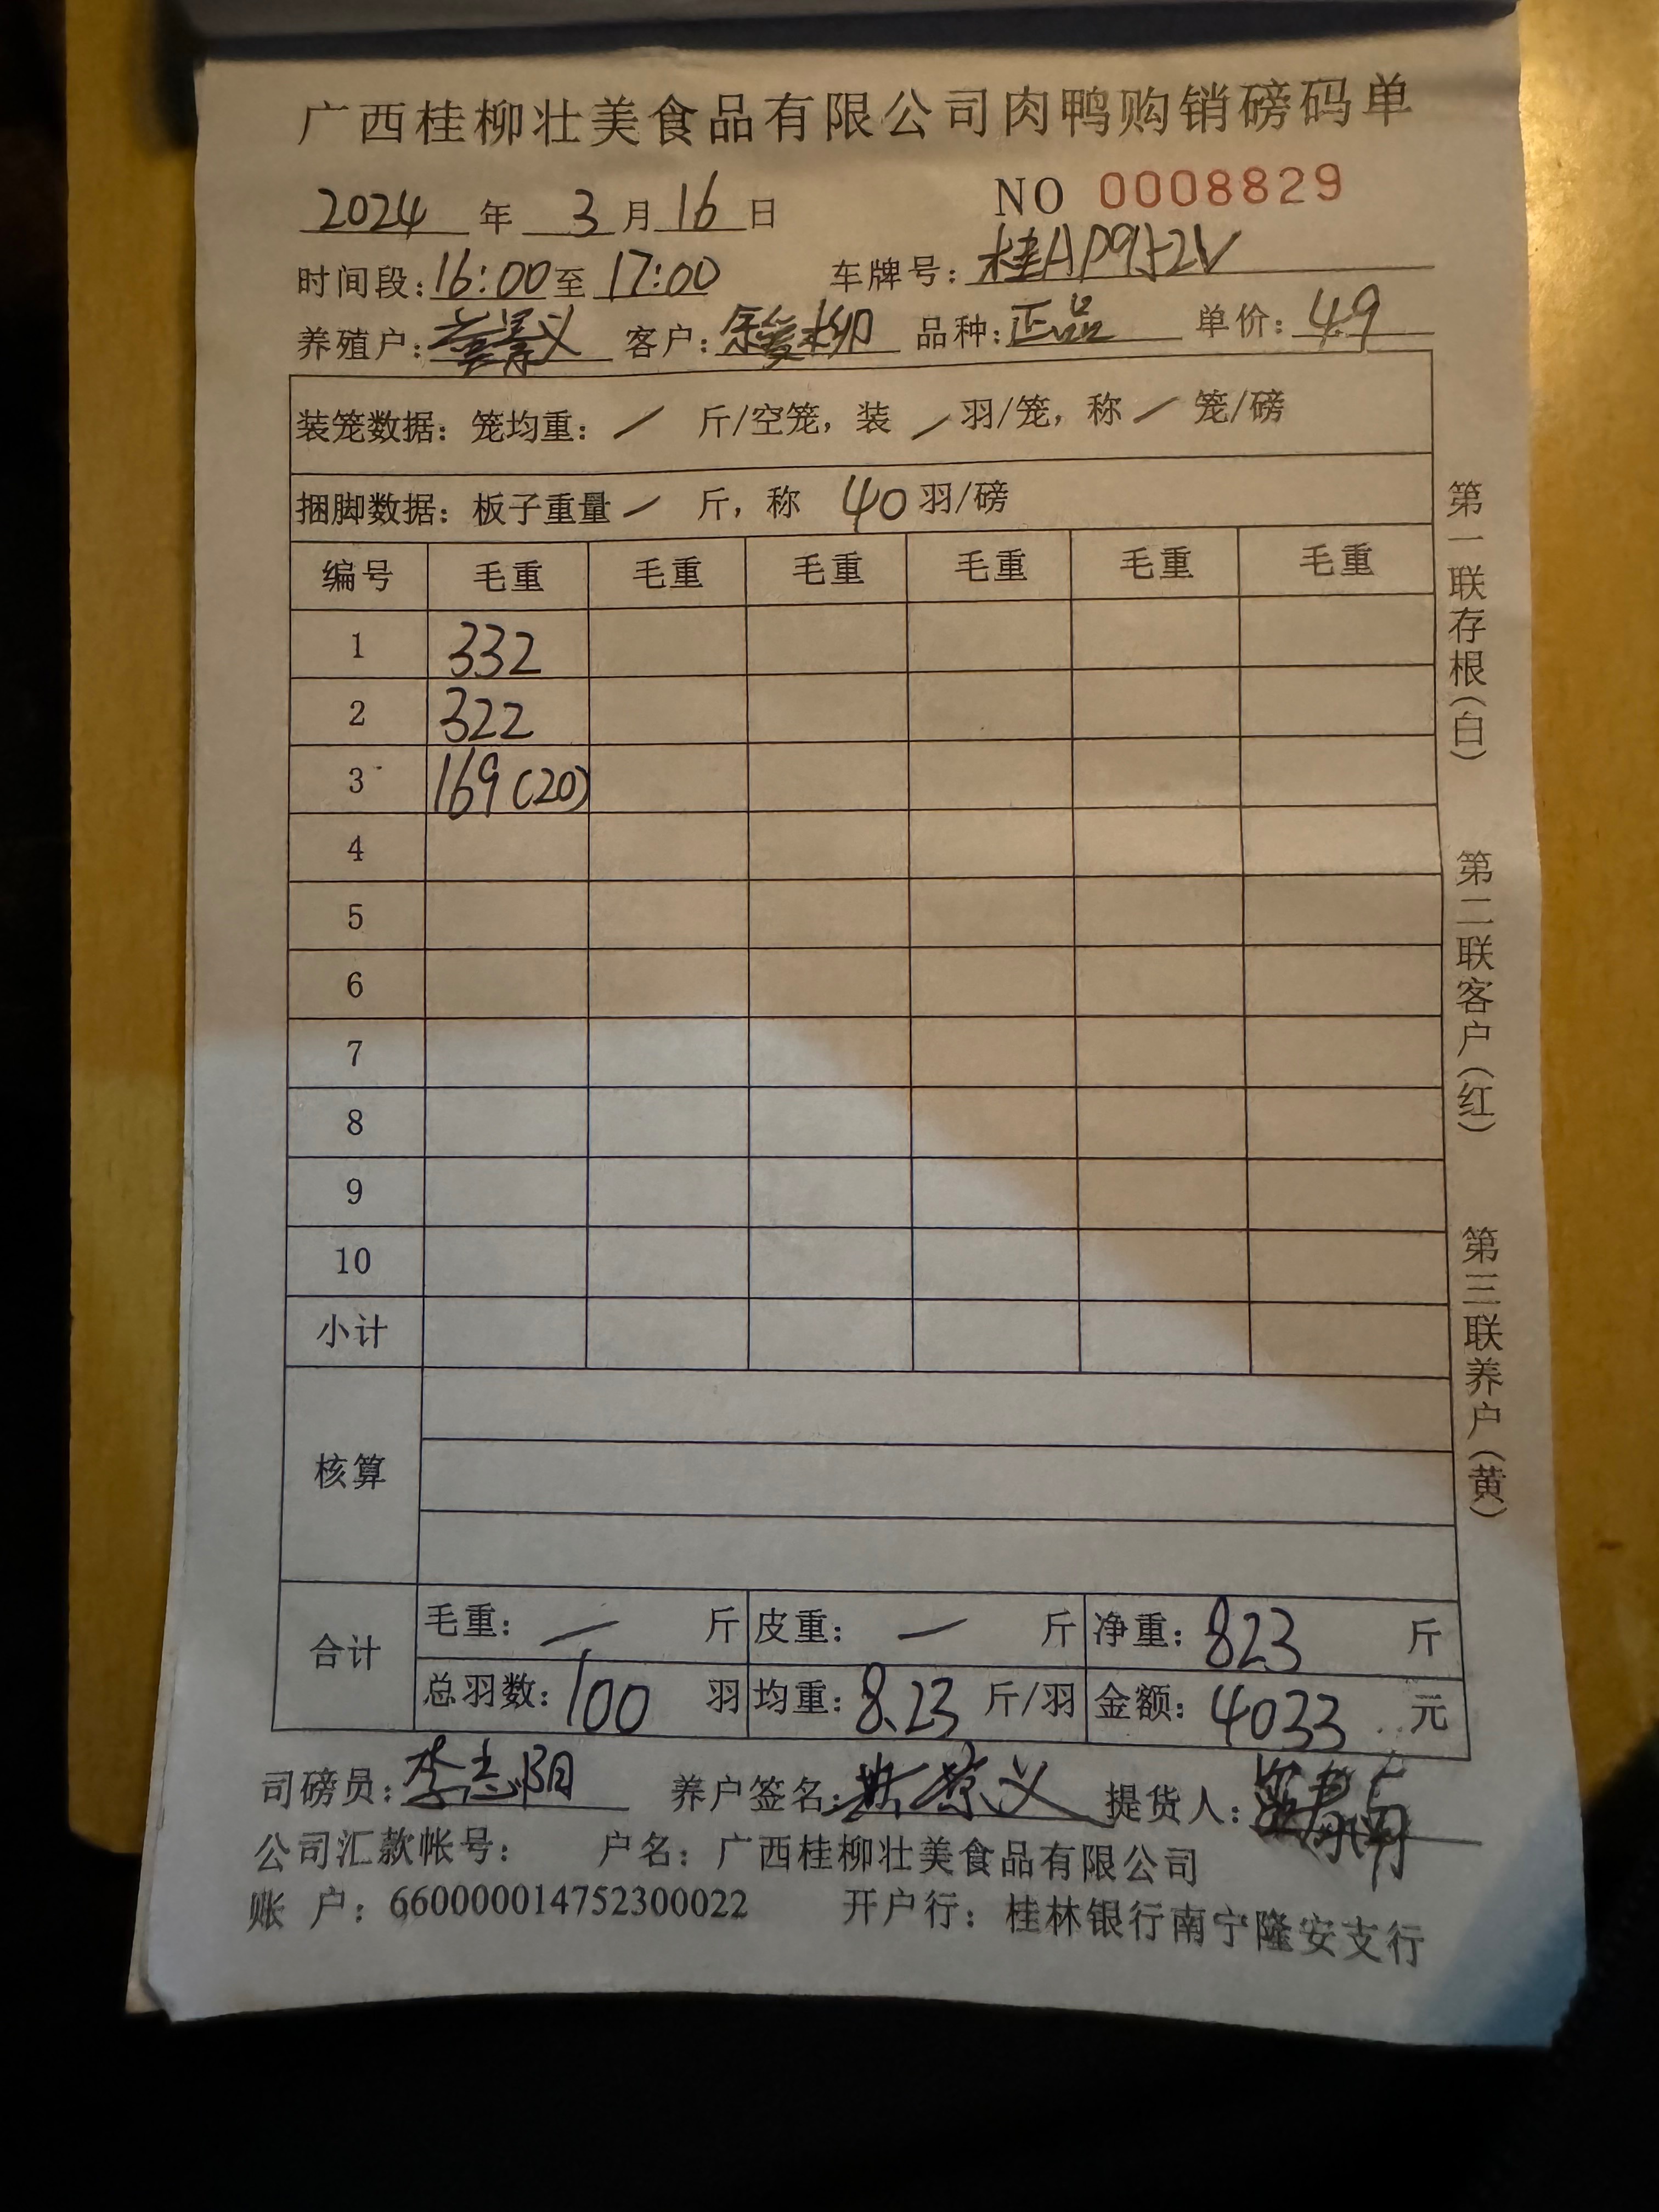 广西桂柳壮美食品有限公司肉鸭购销磅码单
2024 年 3 月 16 日 NO 0008829
时间段: 16:00 至 17:00 车牌号: 桂AD952V
养殖户: 义 客户: 柳 品种: 正品 单价: 4.9
装笼数据: 笼均重: / 斤/空笼, 装 / 羽/笼, 称 / 笼/磅
捆脚数据: 板子重量 / 斤, 称 40 羽/磅
编号 毛重 毛重 毛重 毛重 毛重 毛重
1 332
2 322
3 169(20)
4
5
6
7
8
9
10
小计
核算
合计 毛重: / 斤 皮重: / 斤 净重: 823 斤
总羽数: 100 羽 均重: 8.23 斤/羽 金额: 4033 元
司磅员: 李志阳 养户签名: 义 提货人:
公司汇款帐号: 户名: 广西桂柳壮美食品有限公司
账 户: 660000014752300022 开户行: 桂林银行南宁隆安支行
第一联存根(白)
第二联客户(红)
第三联养户(黄)